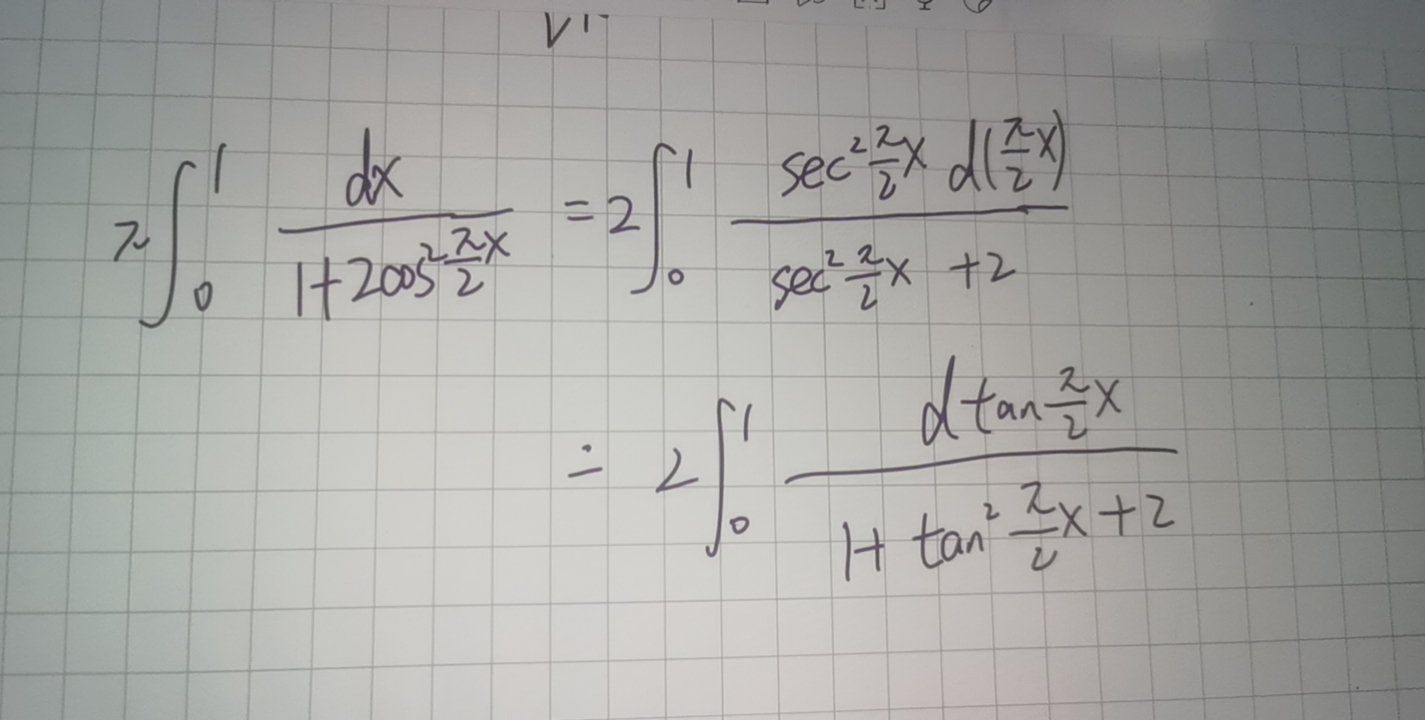 π∫₀¹ dx / (1+2cos² (π/2)x) = 2∫₀¹ sec² (π/2)x d((π/2)x) / (sec² (π/2)x +2)
= 2∫₀¹ d tan (π/2)x / (1+ tan² (π/2)x +2)